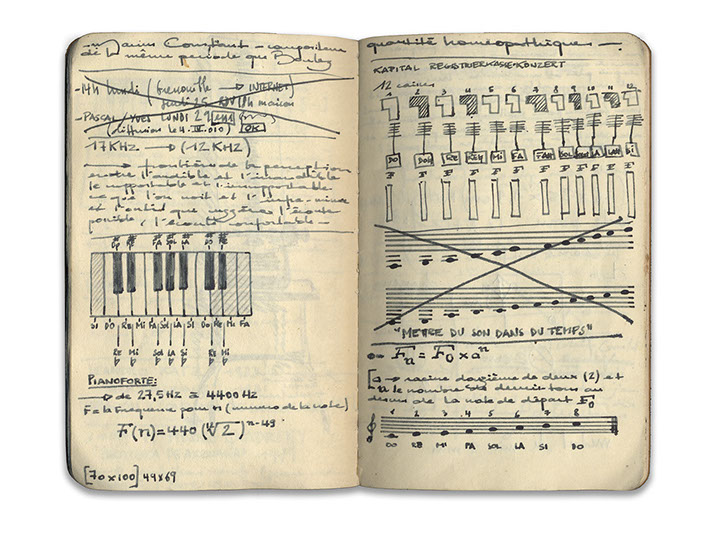 Marius Constant - compositeur
de la même période que Boulez
-14h lundi (Grenouille → INTERNET)
-PASCAL / YVES LUNDI
(diffusion le 4. IV. 010) OK
17KHZ → (-12KHZ)
→ frontière de la perception
entre l'audible et l'inaudible
le supportable et l'insupportable
ce que l'on voit et
DO# RE# FA# SOL# LA# DO# RE#
SI DO RE MI FA SOL LA SI DO RE MI FA
RE MI SOL LA SI RE MI
PIANOFORTE:
→ de 27,5HZ à 4400HZ
F = la Fréquence pour n (numero de la note)
F(n) = 440 (¹²√2)ⁿ⁻⁴⁹
[70x100] 49x69
quantité homéopathique -
KAPITAL REGISTRIERKASSE-KONZERT
12 caisses
1 2 3 4 5 6 7 8 9 10 11 12
DO DO# RE RE# MI FA FA# SOL SOL# LA LA# SI
F F F F F F F F F F F F
"METRE DU SON DANS DU TEMPS"
Fn = F0 x aⁿ
[a → racine douzième de deux (2) et
n le nombre de demis tons au
dessus de la note de départ F0
1 2 3 4 5 6 7 8
DO RE MI FA SOL LA SI DO